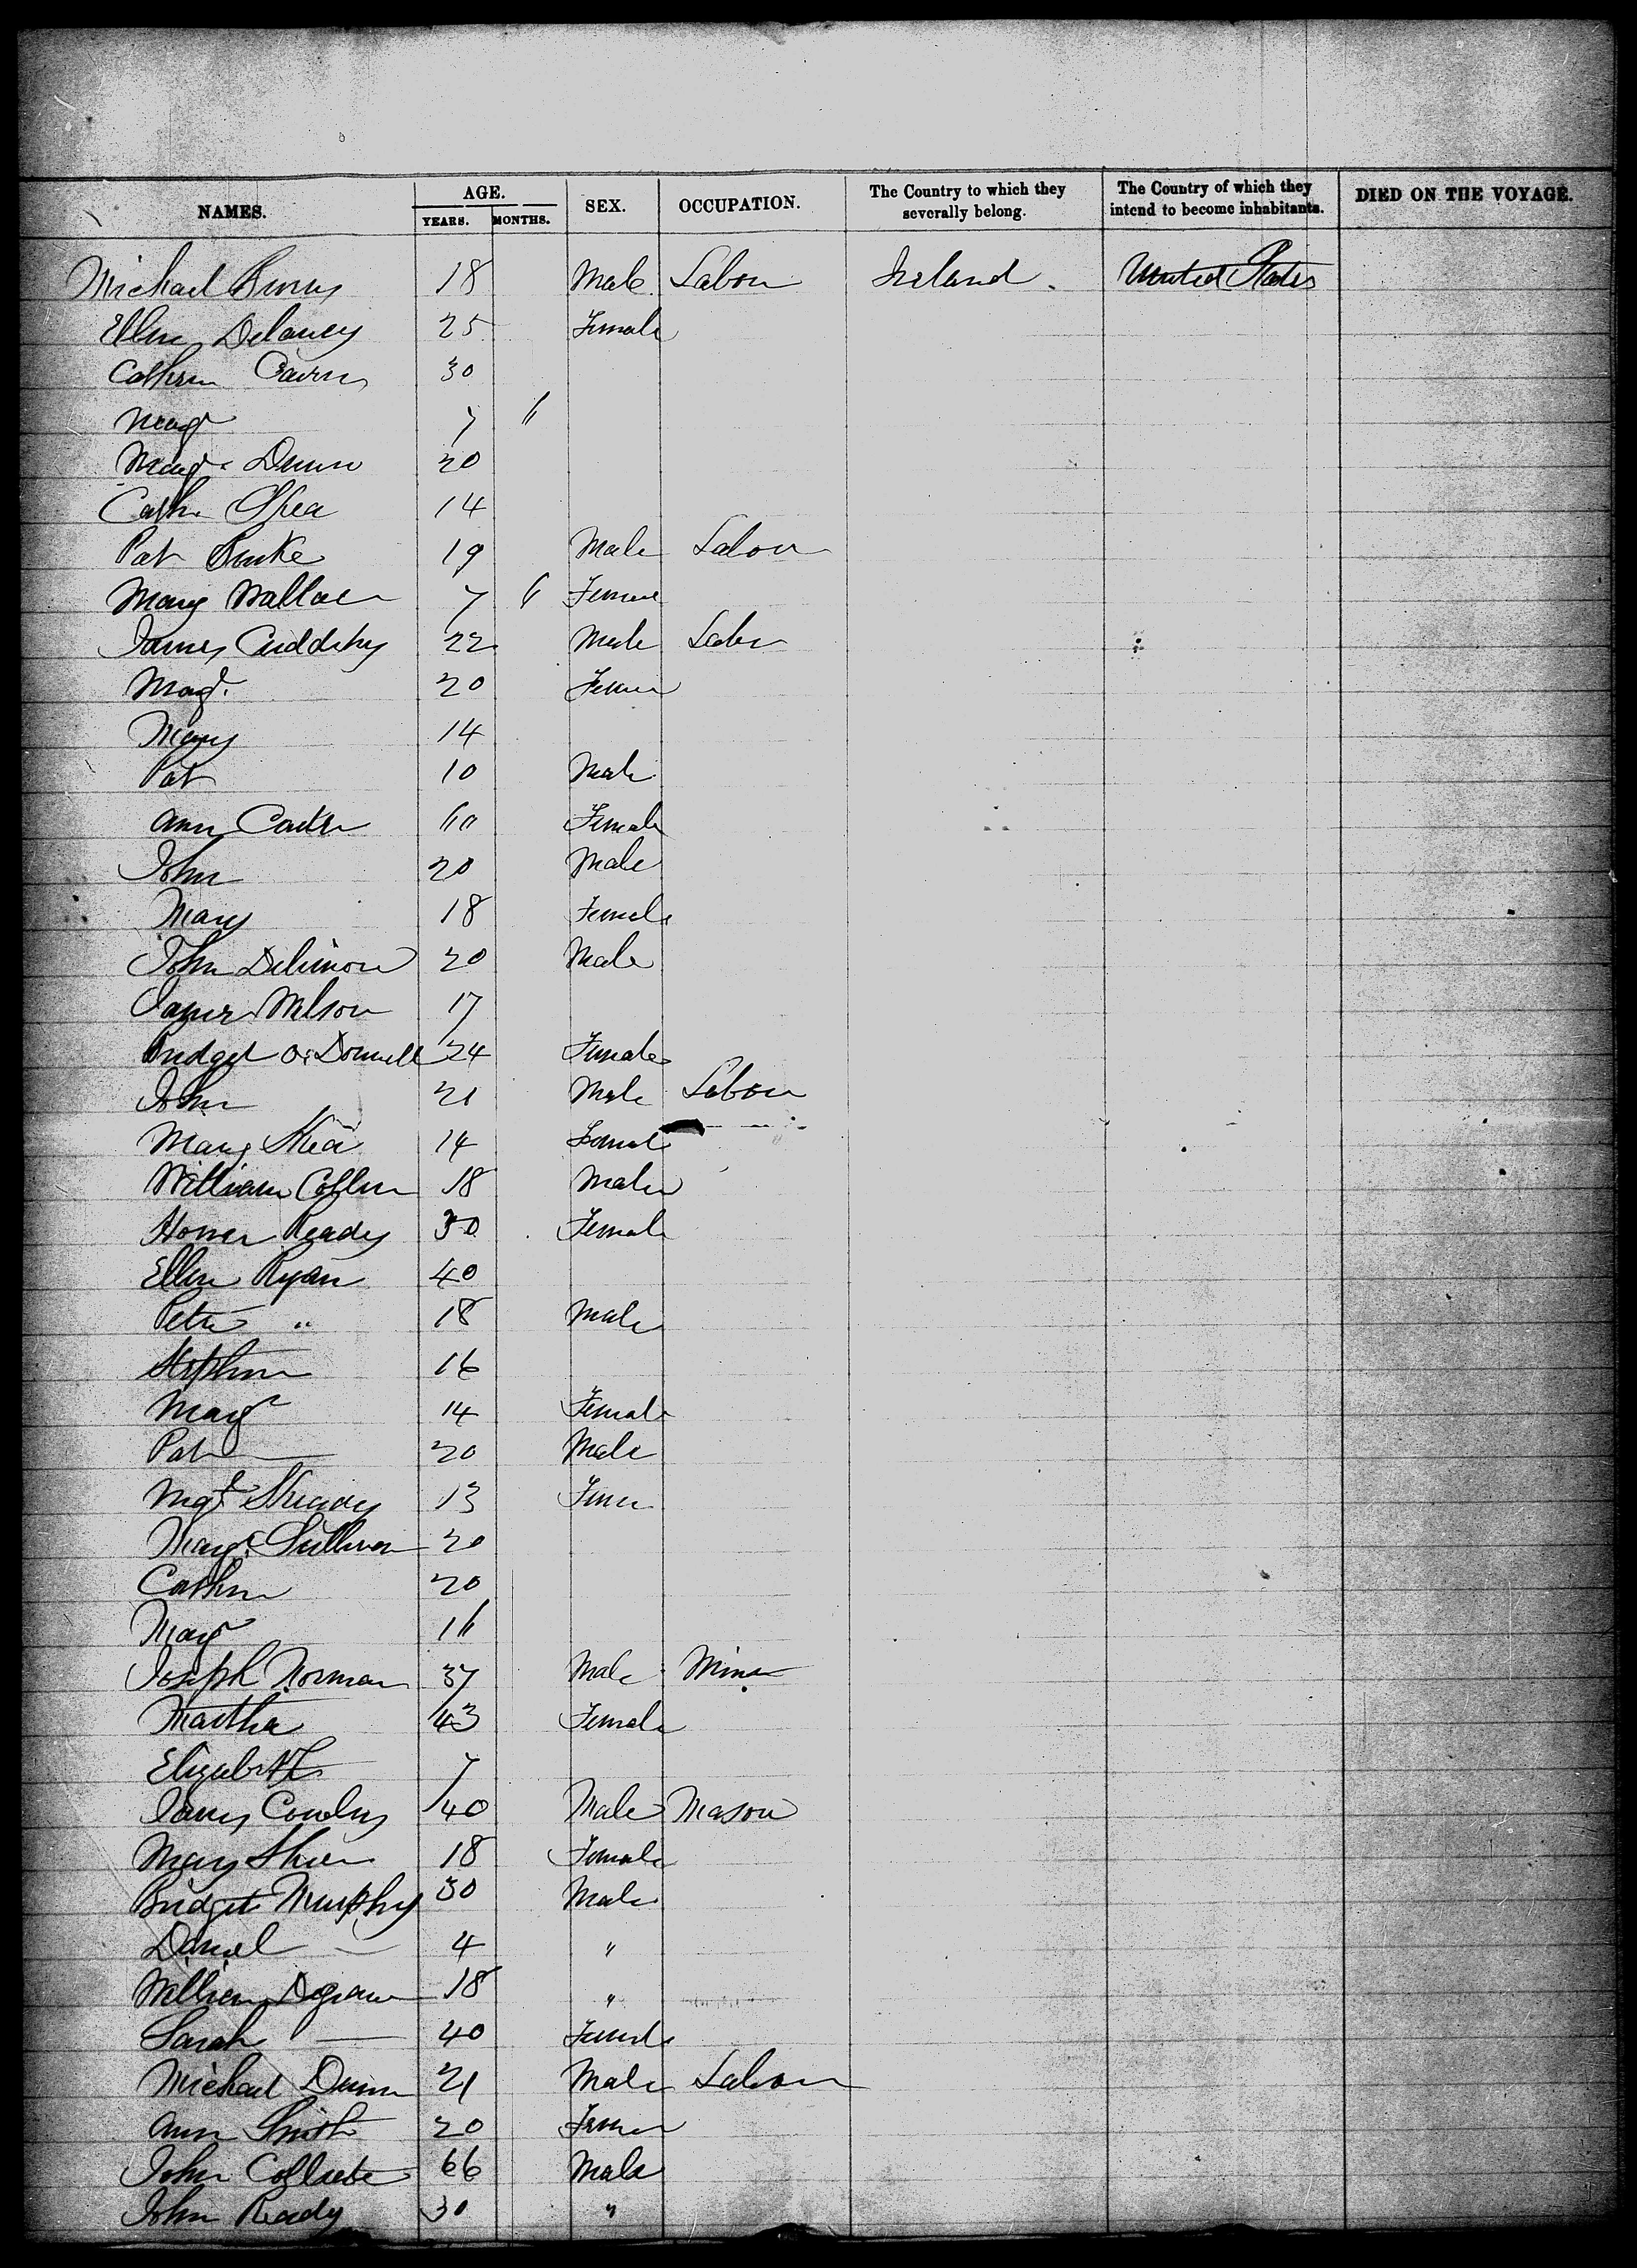 NAMES. AGE. YEARS. MONTHS. SEX. OCCUPATION. The Country to which they severally belong. The Country of which they intend to become inhabitants. DIED ON THE VOYAGE.
Michael Burns 18 Male Labour Ireland United States
Ellen Delaney 25 Female
Cathrin 30
Margt 7
Margt Dunn 20
Cath. Shea 14
Pat Burke 19 Male Labour
Mary Wallace 7 Female
James Cuddehy 22 Male Labor
Margt. 20 Female
Mary 14
Pat 10 Male
Ann Carter 60 Female
John 20 Male
Mary 18 Female
John 20 Male
James Wilson 17
Bridget O'Donnell 24 Female
John 21 Male Labour
Mary Shea 14 Female
William 18 Male
Honer Ready 30 Female
Ellen Ryan 40
Peter " 18 Male
Stephen 16
Margt 14 Female
Pat 20 Male
Mgt 13 Fem
Margt Sullivan 20
Cathrn 20
Margt 16
Joseph Norman 37 Male Miner
Martha 43 Female
Elizabeth 7
James 40 Male Mason
Mary 18 Female
Bridget Murphy 30 Male
Daniel 4 "
William 18 "
Sarah 40 Female
Michael Dunn 21 Male Labour
Ann Smith 20 Female
John 66 Male
John Ready 30 "